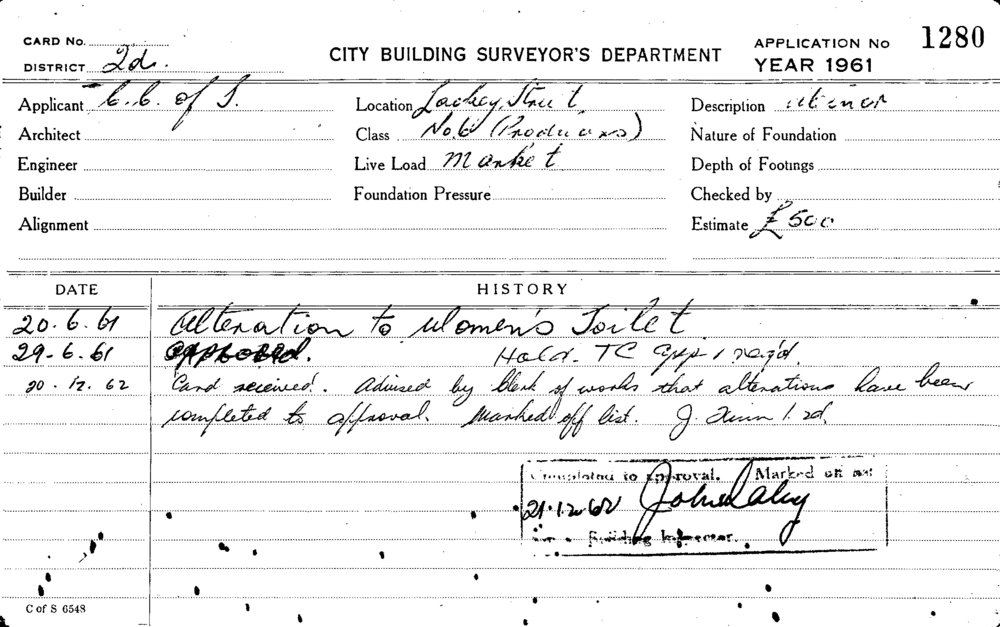 CARD No.
DISTRICT 2d.
CITY BUILDING SURVEYOR'S DEPARTMENT
APPLICATION No 1280
YEAR 1961
Applicant C.C. of S. Location Lackey Street Description
Architect Class No. 6 (Producers) Nature of Foundation
Engineer Live Load Market Depth of Footings
Builder Foundation Pressure Checked by
Alignment Estimate £500
DATE HISTORY
20.6.61 Alteration to Women's Toilet
29.6.61 approved. Hold. TC app
20.12.62 Card received. Advised by Clerk of works that alterations have been
completed to approval. Marked off list. J.
Completed to approval. Marked on
21.12.62
Building Inspector.
C of S 6548